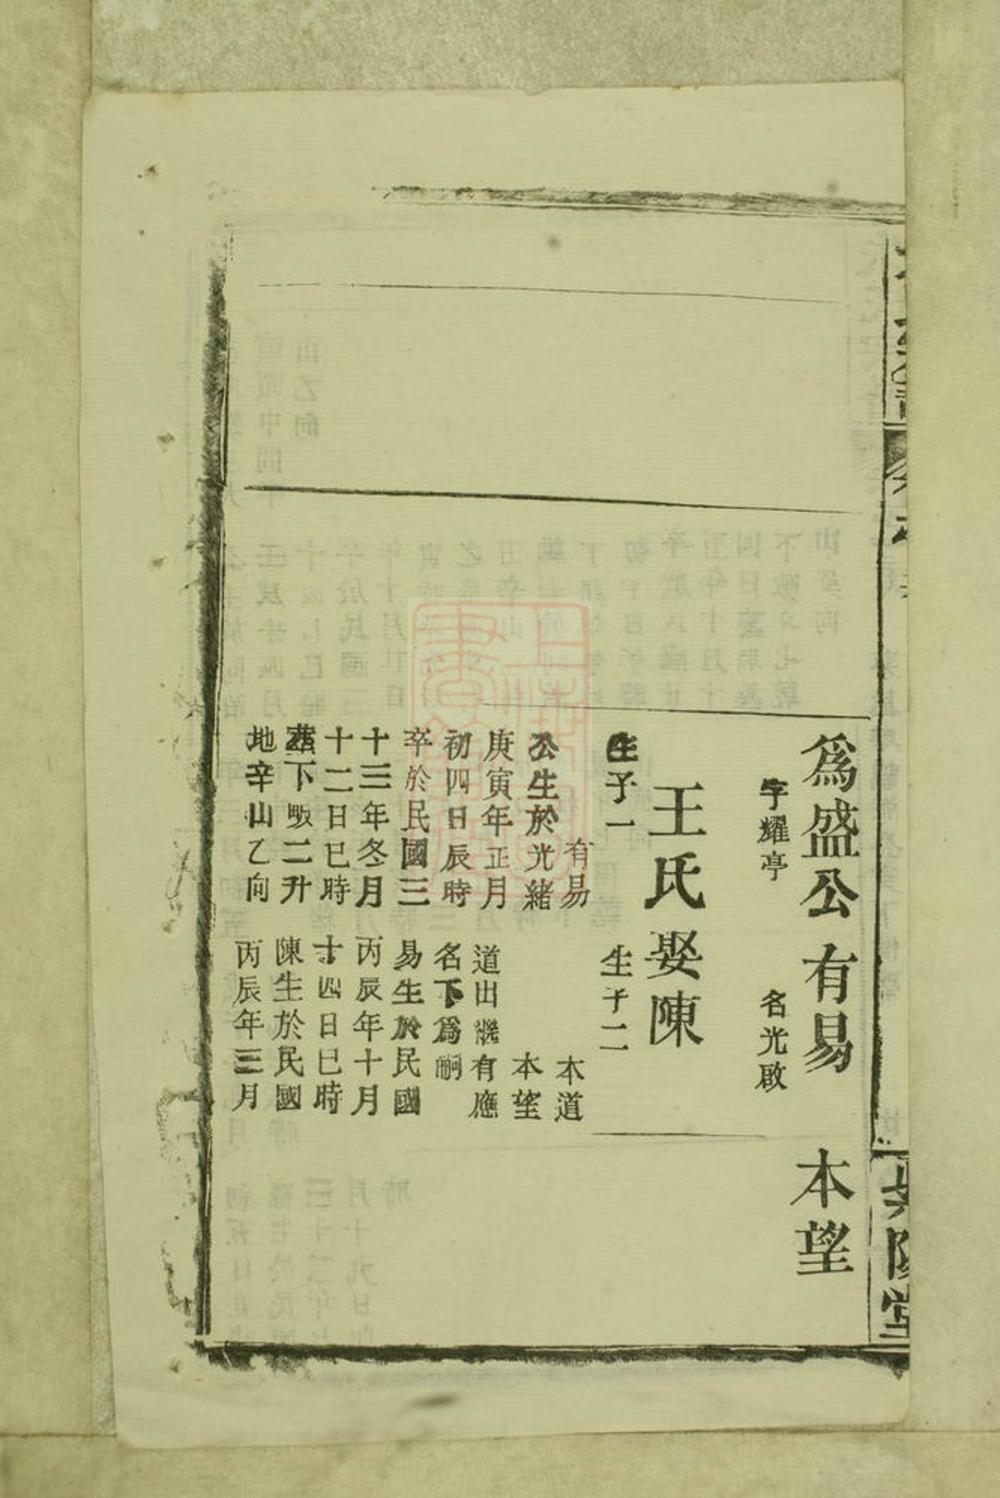 為盛公
字耀亭
王氏
生子一
有易
公生於光緒
庚寅年正月
初四日辰時
卒於民國三
十三年冬月
十二日巳時
塟下畈二升
地辛山乙向
有易
名光啟
娶陳
生子二
本道
本望
道出繼有應
名下為嗣
易生於民國
丙辰年十月
十四日巳時
陳生於民國
丙辰年三月
本望